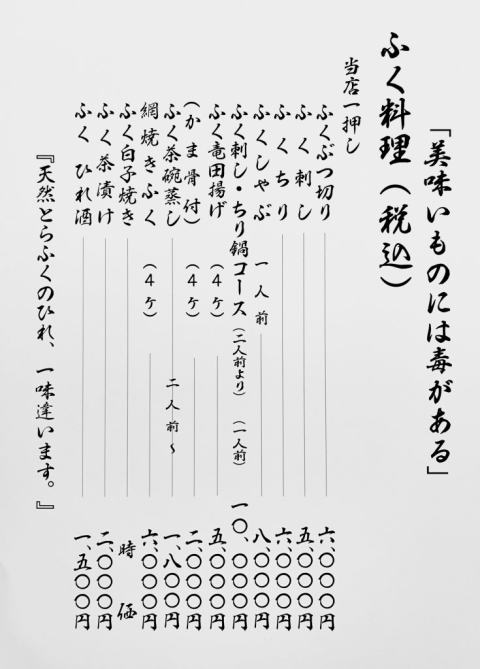 「美味いものには毒がある」
ふく料理(税込)
当店一押し
ふくぶつ切り 六、〇〇〇円
ふく刺し 五、〇〇〇円
ふくちり 六、〇〇〇円
ふくしゃぶ 一人前 八、〇〇〇円
ふく刺し・ちり鍋コース(二人前より) (一人前) 一〇、〇〇〇円
ふく竜田揚げ (4ケ) 五、〇〇〇円
(かま骨付) (4ケ) 二、〇〇〇円
ふく茶碗蒸し 二人前~ 一、八〇〇円
網焼きふく (4ケ) 六、〇〇〇円
ふく白子焼き 時価
ふく茶漬け 二、〇〇〇円
ふく ひれ酒 一、五〇〇円
『天然とらふくのひれ、一味違います。』